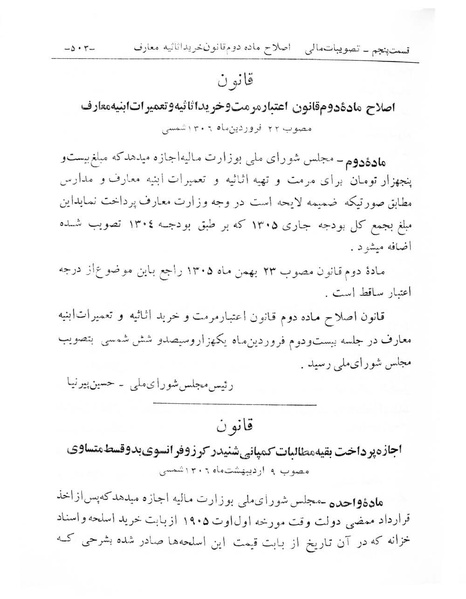 قسمت پنجم – تصویبات مالی اصلاح ماده دوم قانون خرید اثاثیه معارف -۵۰۳-
قانون
اصلاح مادهٔ دوم قانون اعتبار مرمت و خرید اثاثیه و تعمیرات ابنیه معارف
مصوب ۲۲ فروردین ماه ۱۳۰۶ شمسی
مادهٔ دوم – مجلس شورای ملی بوزارت مالیه اجازه میدهد که مبلغ بیست و
پنجهزار تومان برای مرمت و تهیه اثاثیه و تعمیرات ابنیه معارف و مدارس
مطابق صورتیکه ضمیمه لایحه است در وجه وزارت معارف پرداخت نماید این
مبلغ بجمع کل بودجه جاری ۱۳۰۵ که بر طبق بودجه ۱۳۰۴ تصویب شده
اضافه میشود .
مادهٔ دوم قانون مصوب ۲۳ بهمن ماه ۱۳۰۵ راجع باین موضوع از درجه
اعتبار ساقط است .
قانون اصلاح ماده دوم قانون اعتبار مرمت و خرید اثاثیه و تعمیرات ابنیه
معارف در جلسه بیست و دوم فروردین ماه یکهزار و سیصد و شش شمسی بتصویب
مجلس شورای ملی رسید .
رئیس مجلس شورای ملی – حسین پیرنیا
قانون
اجازه پرداخت بقیه مطالبات کمپانی شنیدر کرزو فرانسوی بدو قسط متساوی
مصوب ۹ اردیبهشت ماه ۱۳۰۶ شمسی
مادهٔ واحده – مجلس شورای ملی بوزارت مالیه اجازه میدهد که پس از اخذ
قرارداد ممضی دولت وقت مورخه اول اوت ۱۹۰۵ از بابت خرید اسلحه و اسناد
خزانه که در آن تاریخ از بابت قیمت این اسلحه‌ها صادر شده بشرحی که